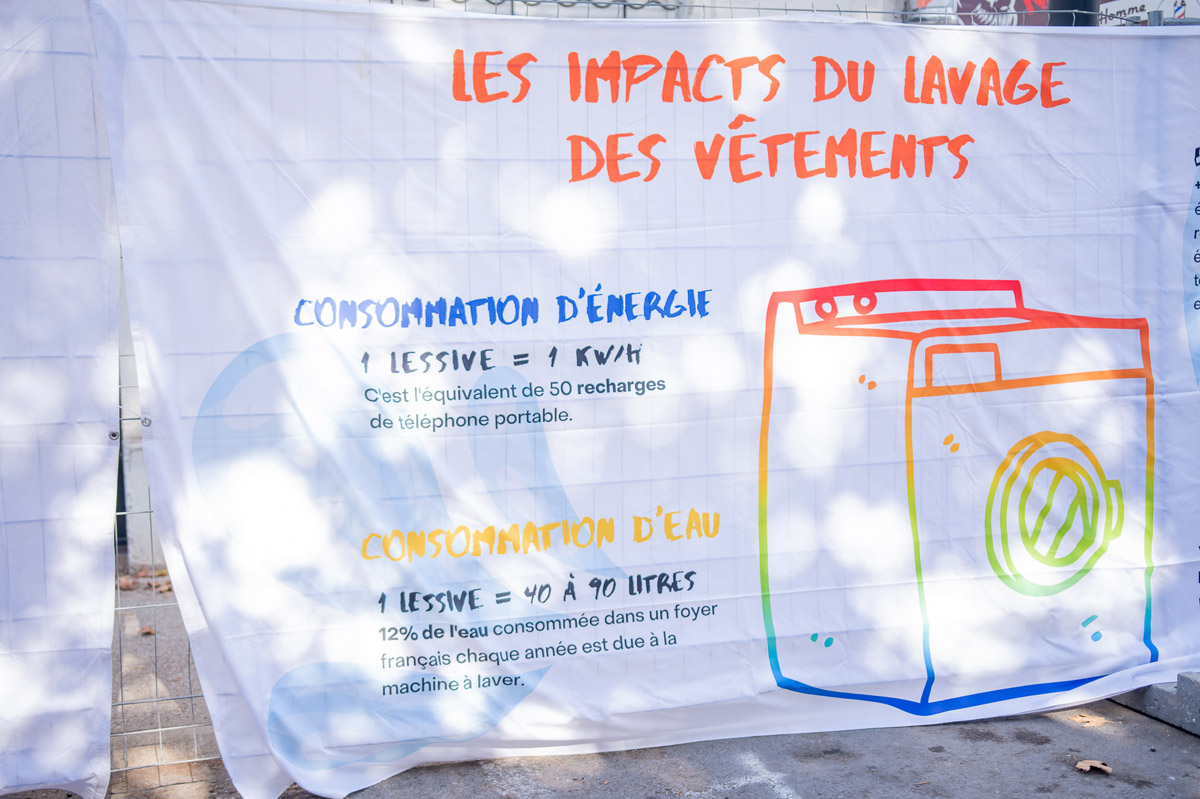 Homme
LES IMPACTS DU LAVAGE
DES VÊTEMENTS
CONSOMMATION D'ÉNERGIE
1 LESSIVE = 1 KW/H
C'est l'équivalent de 50 recharges
de téléphone portable.
CONSOMMATION D'EAU
1 LESSIVE = 40 À 90 LITRES
12% de l'eau consommée dans un foyer
français chaque année est due à la
machine à laver.